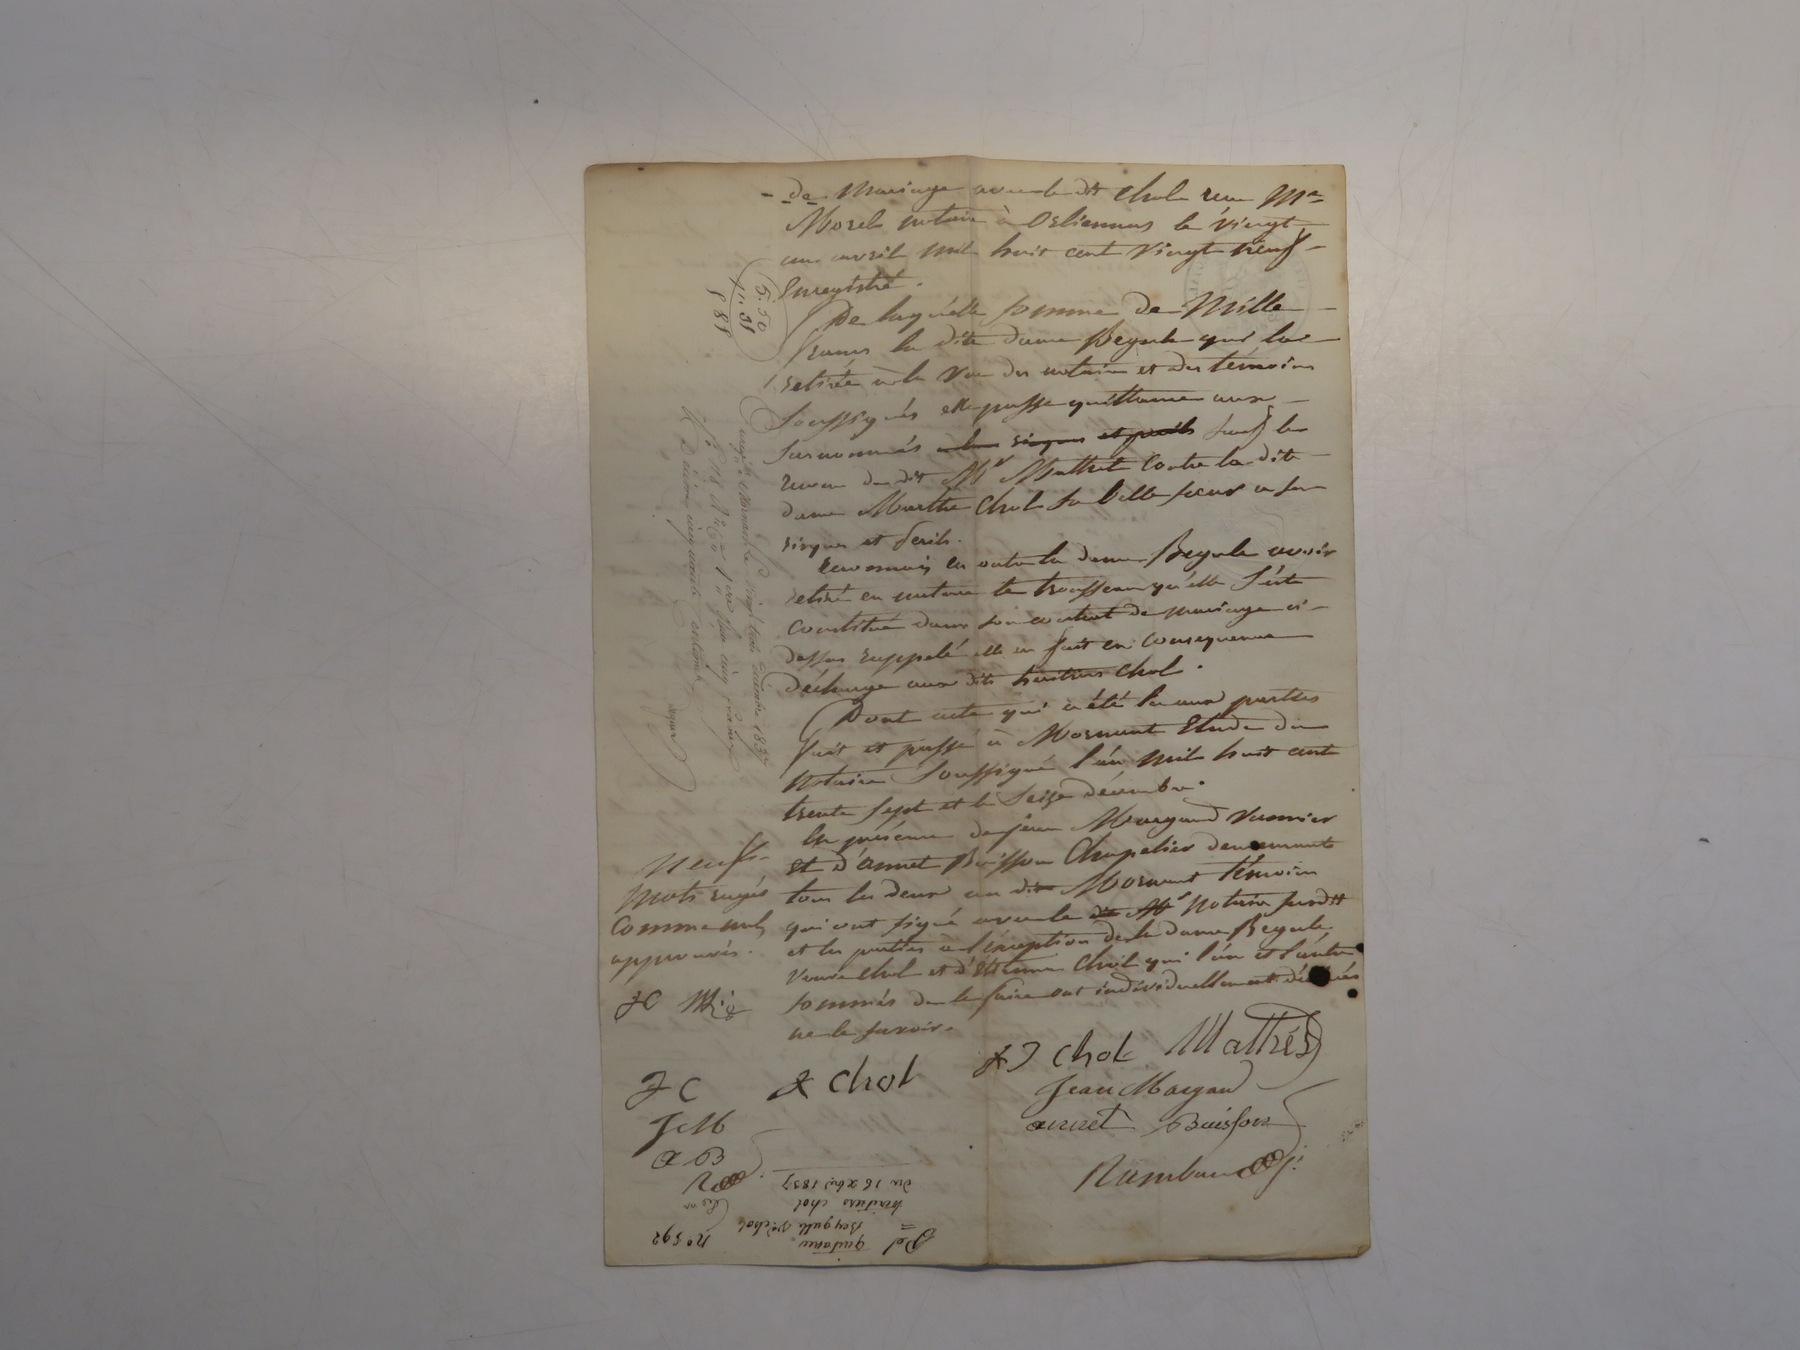 de Mariage avec le dit Chol reçu Me
Morel notaire à Orliennas le vingt
un avril mil huit cent vingt neuf
Enregistré.
De laquelle somme de Mille
francs la dite dame Begule qui l'a
retirée à la vue du notaire et des témoins
soussignés elle passe quittance aux
surnommés à leurs risques et périls sauf le
recours du dit Mr Mathet contre la dite
dame Marthe Chol sa belle soeur à ses
risques et périls.
Reconnais en outre la dame Begule avoir
retiré en nature le trousseau qu'elle s'est
constitué dans son contrat de mariage ci-
dessus rappelé elle en fait en conséquence
décharge aux dits héritiers Chol.
Dont acte qui a été lu aux parties
fait et passé à Mornant Etude du
Notaire soussigné l'an mil huit cent
trente sept et le seize décembre.
En présence de Jean Margand
et d'annet Buisson Chapelier demeurants
tous les deux au dit Mornant témoins
qui ont signé avec le dit Me Notaire susdit
et les parties à l'exception de la dame Begule
veuve Chol et d'Etienne Chol qui l'un et l'autre
sommés de le faire ont individuellement déclarés
ne le savoir.
Neuf
mots rayés
comme nuls
approuvés.
JC
JC
JM
a B
chol
J Chol Mathés
Jean Margand
annet Buisson
5. 50
1837
n° 592
quitance
Begulle Ve chol
héritiers chol
du 16 Xbre 1837